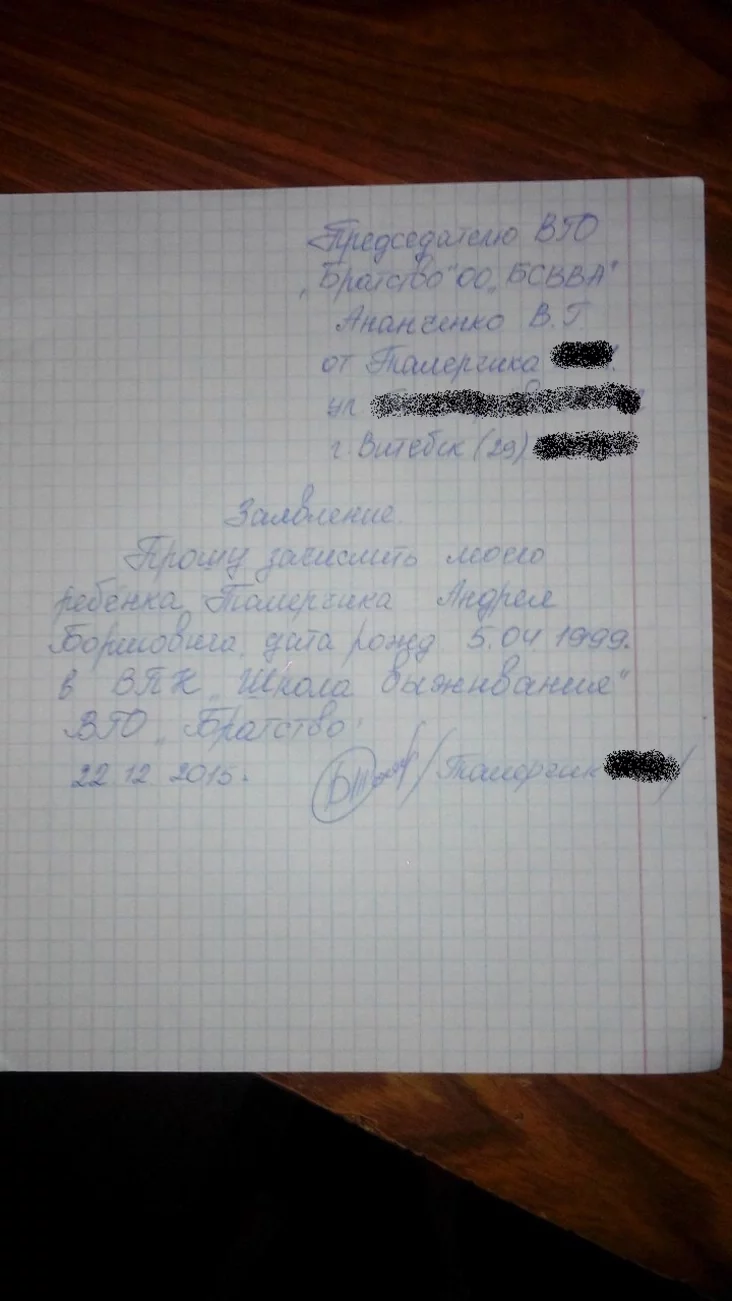 Председателю ВГО
„Братство" ОО „БСВВА"
Ананченко В.Г.
от Талерчика
ул.
г. Витебск (29)
Заявление.
Прошу зачислить моего
ребёнка, Талерчика Андрея
Борисовича, дата рожд. 5.04 1999.
в ВПК „Школа выживания"
ВГО „Братство".
22.12 2015.
/Талерчик /